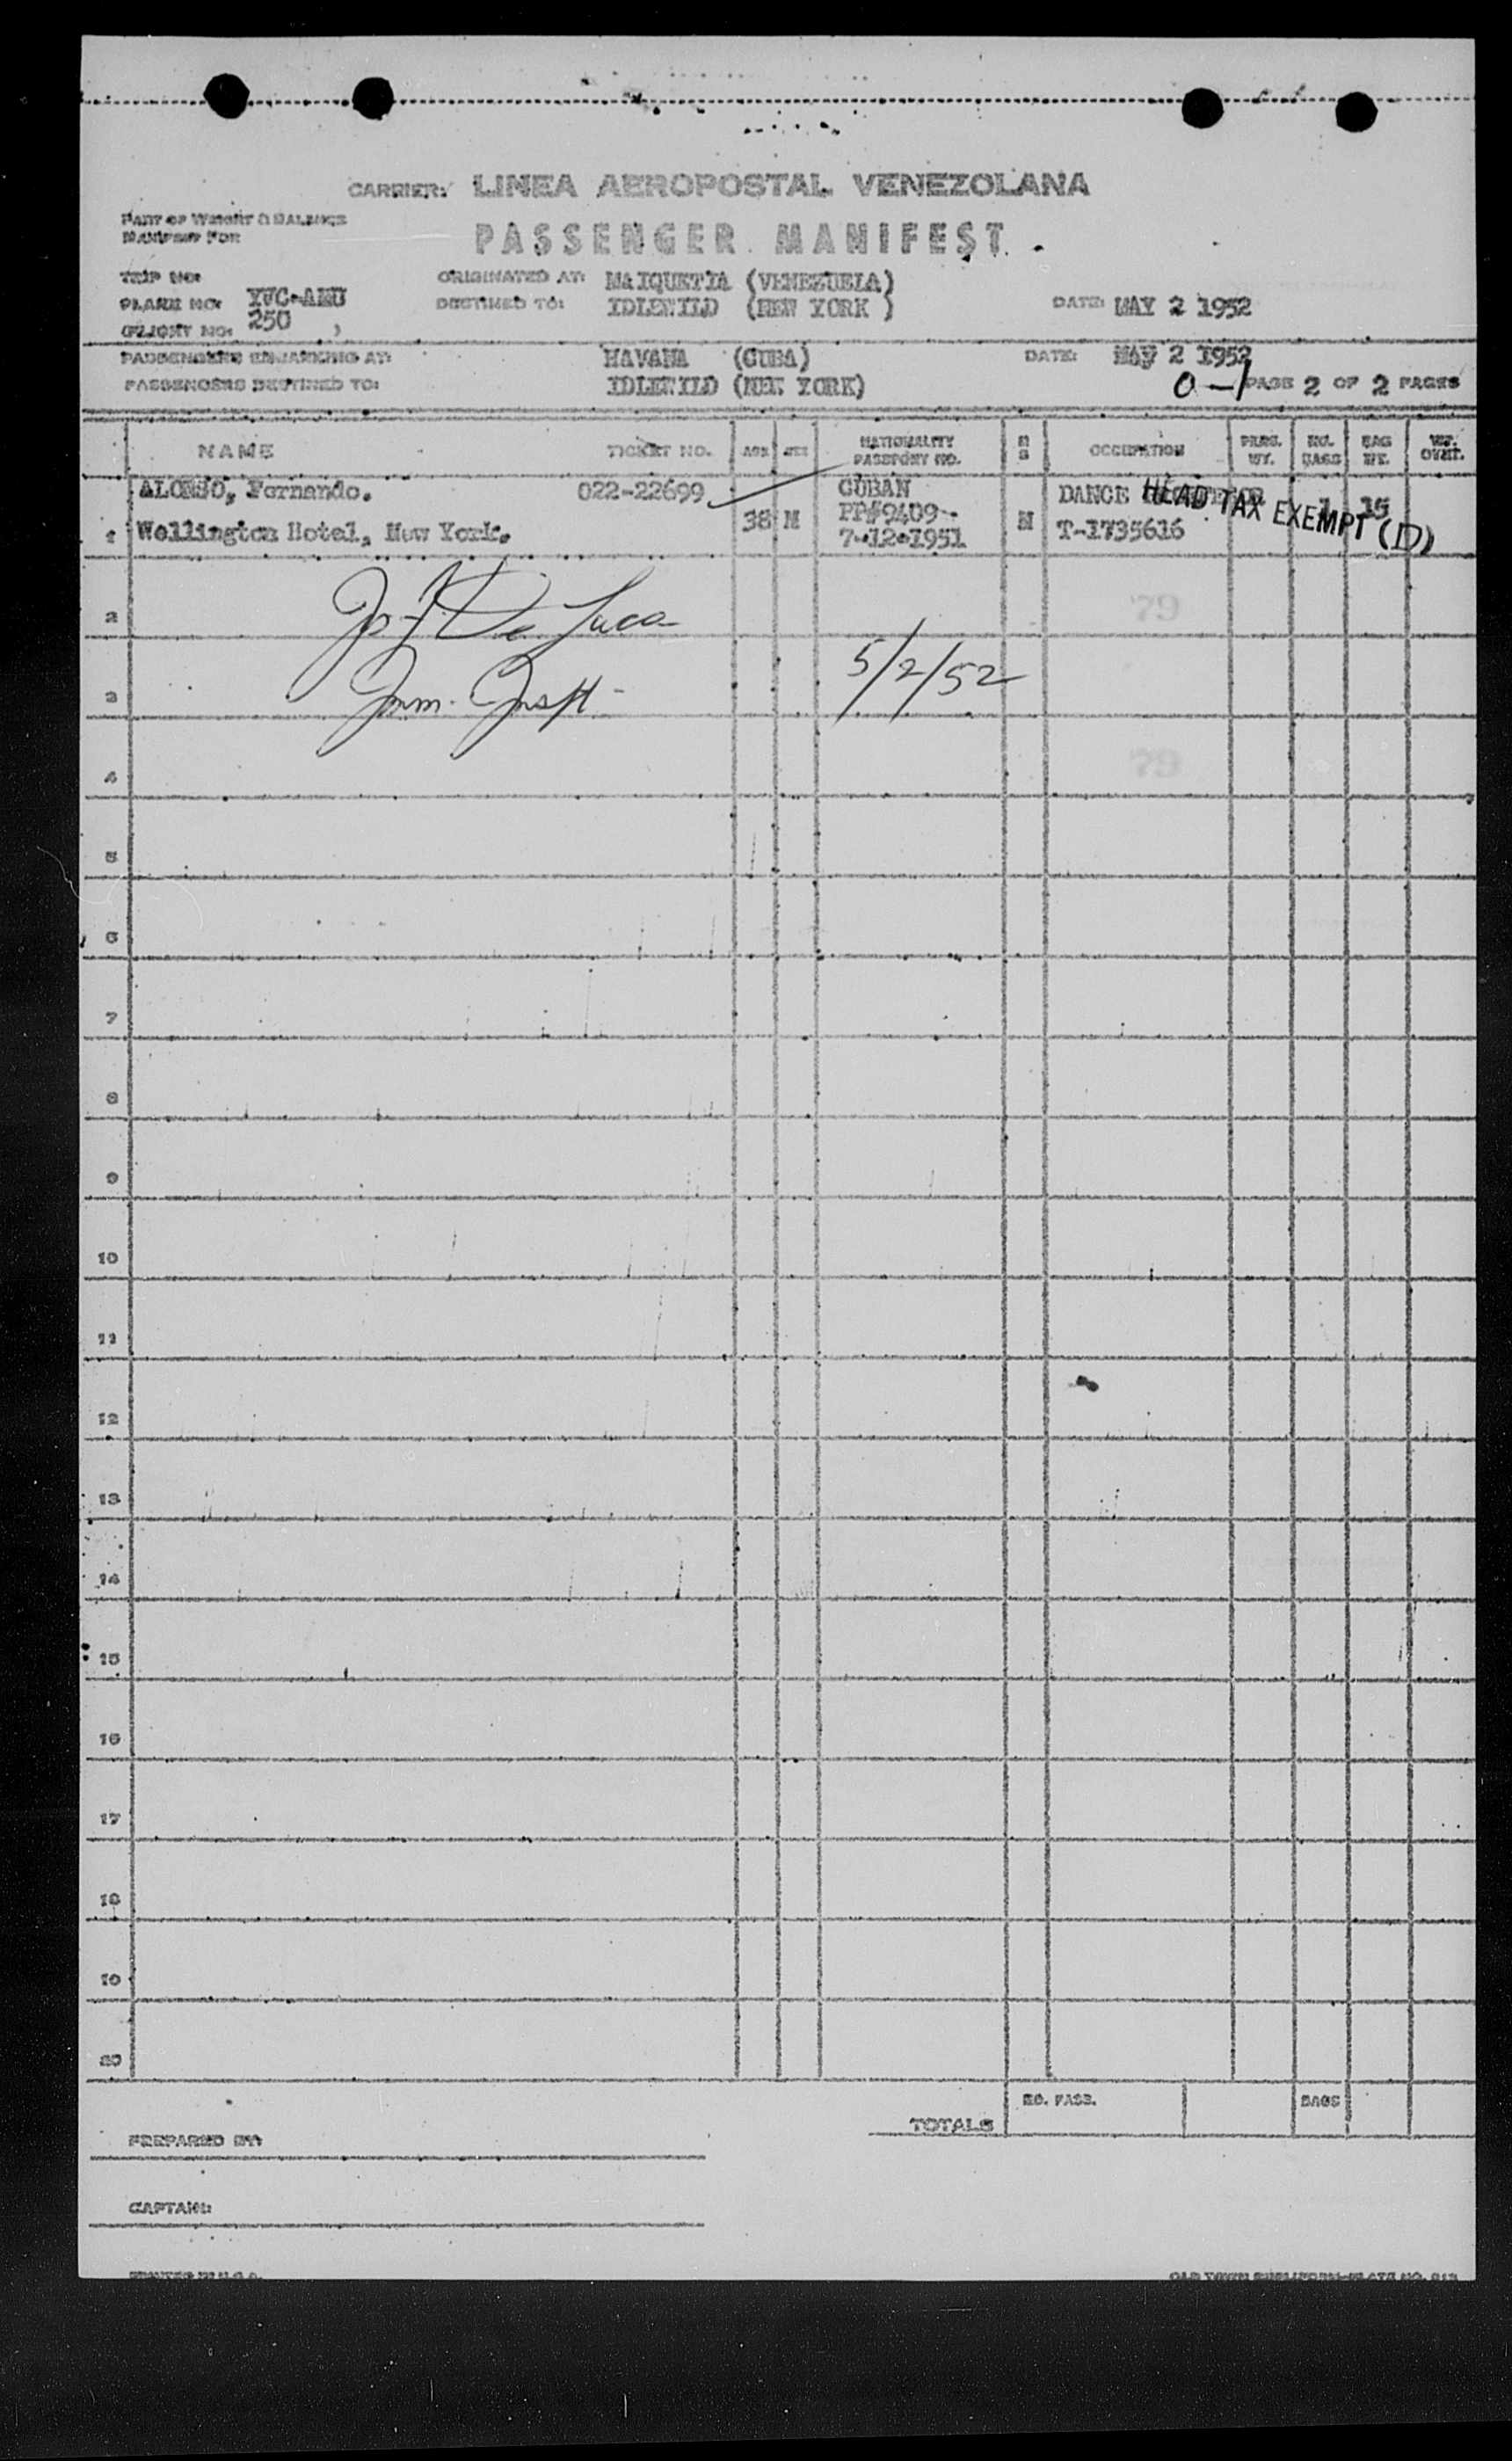 CARRIER: LINEA AEROPOSTAL VENEZOLANA
PART OF WEIGHT & BALANCE
MANIFEST FOR
PASSENGER MANIFEST
TRIP NO:
PLANE NO: YVC-AMU
(FLIGHT NO: 250 )
ORIGINATED AT: MAIQUETIA (VENEZUELA)
DESTINED TO: IDLEWILD (NEW YORK )
DATE: MAY 2 1952
PASSENGERS EMBARKING AT: HAVANA (CUBA)
DATE: MAY 2 1952
PASSENGERS DESTINED TO: IDLEWILD (NEW YORK)
0-1 PAGE 2 OF 2 PAGES
NAME TICKET NO. AGE SEX NATIONALITY PASSPORT NO. M S OCCUPATION PASS. WT. NO. BAGS BAG WT. WT. OVHT.
ALONSO, Fernando. 022-22699 CUBAN DANCE
1 Wellington Hotel, New York. 38 M PP#9409- M T-1735616 1 15
7-12-1951
HEAD TAX EXEMPT (D)
De Luca
79
2
Imm. Inspt- 5/2/52
3
79
4
5
6
7
8
9
10
11
12
13
14
15
16
17
18
19
20
TOTALS NO. PASS. BAGS
PREPARED BY:
CAPTAIN:
PRINTED IN U.S.A.